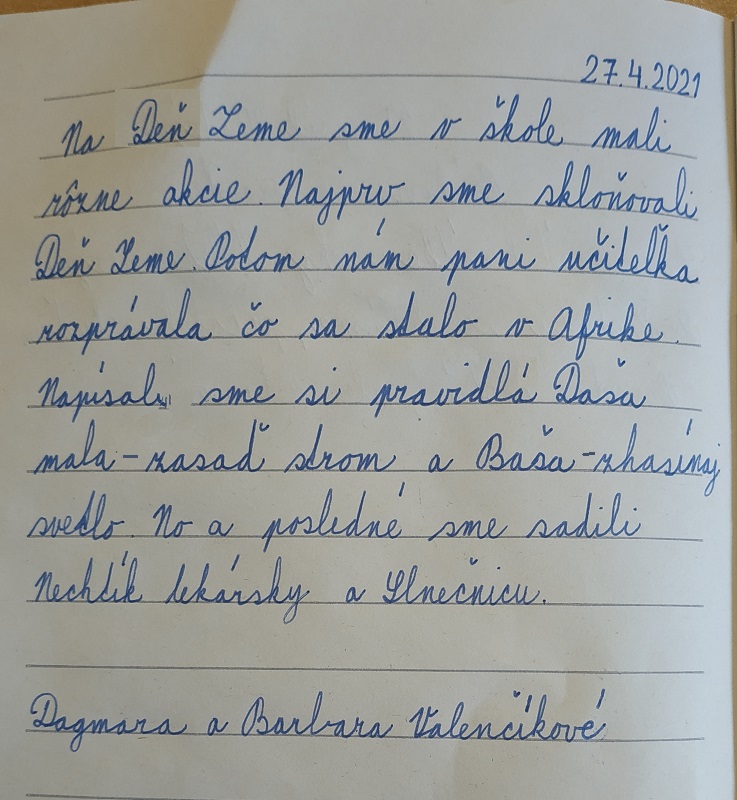 27.4.2021
Na Deň Zeme sme v škole mali
rôzne akcie. Najprv sme skloňovali
Deň Zeme. Potom nám pani učiteľka
rozprávala čo sa stalo v Afrike.
Napísali sme si pravidlá Daša
mala-zasaď strom a Baša-zhasínaj
svetlo. No a posledné sme sadili
Nechtík lekársky a Slnečnicu.
Dagmara a Barbara Valenčíkové